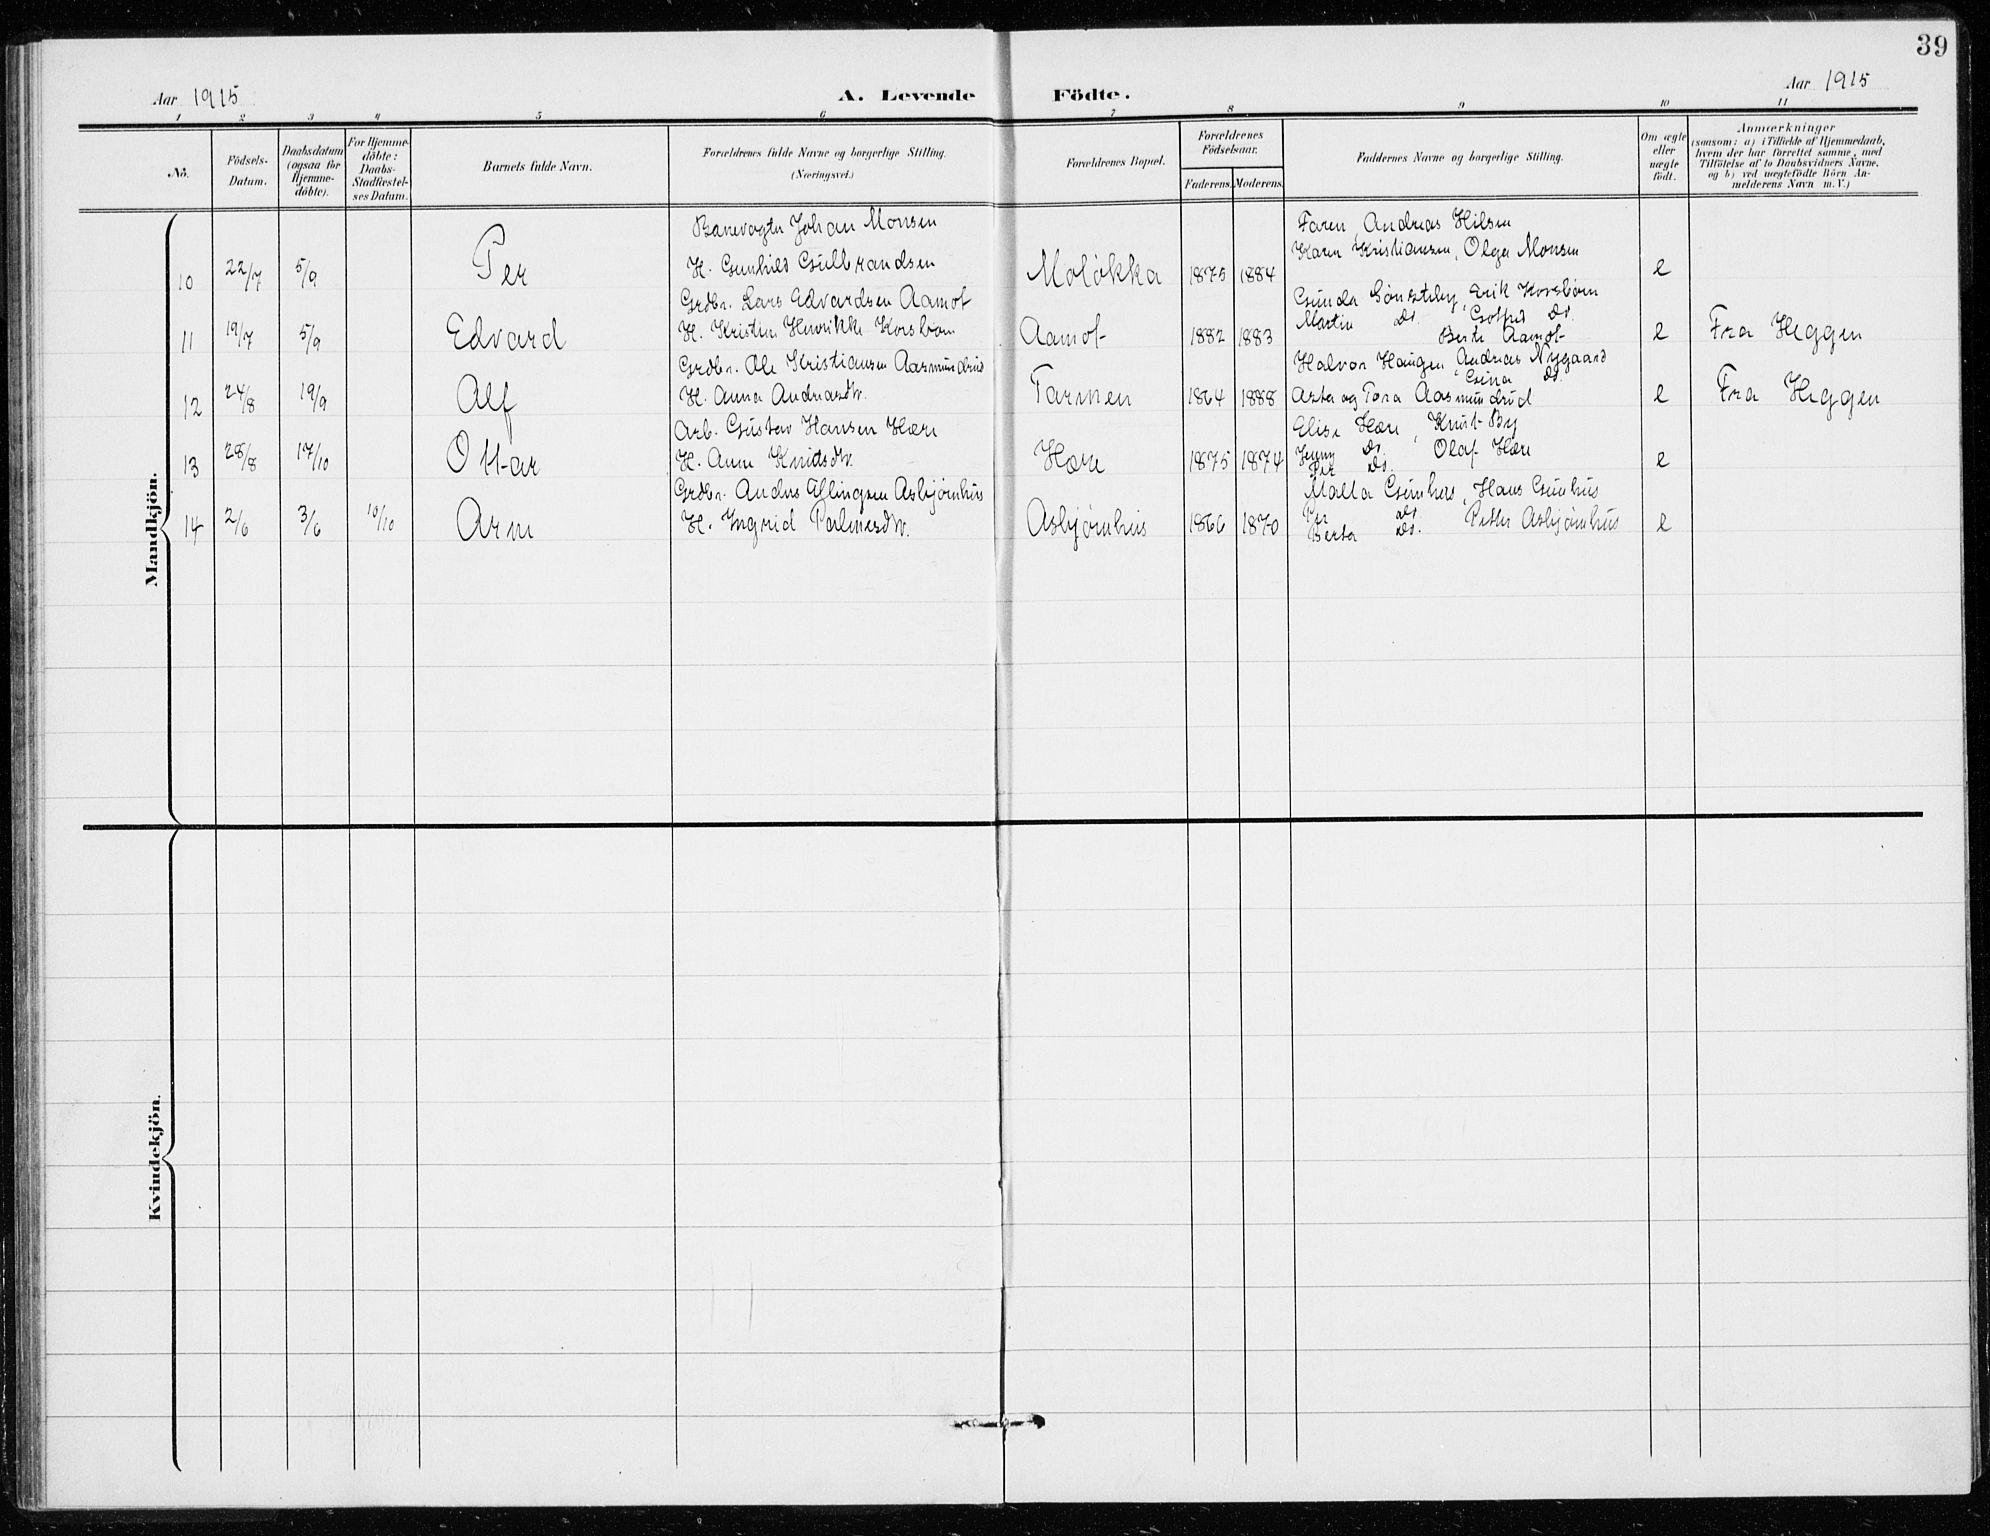 39
Aar 1915
A. Levende Födte.
Aar 1915
1 2 3 4 5 6 7 8 9 10 11
No.
Födsels-Datum.
Daabsdatum (ogsaa for Hjemme-döbte).
For Hjemme-döbte: Daabs-Stadfæstel-ses Datum.
Barnets fulde Navn.
Forældrenes fulde Navne og borgerlige Stilling. (Næringsvei.)
Forældrenes Bopæl.
Forældrenes Födselsaar.
Faderens. Moderens.
Faddernes Navne og borgerlige Stilling.
Om ægte eller uægte födt.
Anmærkninger
(saasom: a) i Tilfælde af Hjemmedaab,
hvem der har forrettet samme, med
Tilföielse af to Daabsvidners Navne,
og b) ved uægtefödte Börn An-
melderens Navn m. V.)
Mandkjön.
Banevogter Johan Monsen
Faren, Andreas Hilsen
Karen Kristiansen, Olga Monsen
10 22/7 5/9 Per H. Gunhild Gulbrandsen Moløkka 1875 1884 e
Grdbr. Lars Edvardsen Aamot
Gunda Sønsteby, Erik Korsbøen
Martin Do. Gotfred Do.
11 19/7 5/9 Edvard H. Kristin Henrikke Korsbøen Aamot 1882 1883 Berte Aamot e Fra Heggen
Grdbr. Ole Kristiansen Aasmundrud
Halvor Haugen, Andreas Nygaard
Gina Do.
12 24/8 19/9 Alf H. Anna Andreasdtr. Tarmen 1864 1888 Asta og Tora Aasmundrud e Fra Heggen
Arb. Gustav Hansen Hære
Elise Hære, Knut By
13 28/8 17/10 Ottar H. Anne Knudsdtr. Hære 1875 1874 Jenny Do. Olaf Hære e
Per Do.
Grdbr. Anders Ellingsen Asbjørnhus
Malla Gunhus, Hans Gunhus
14 2/6 3/6 10/10 Arne H. Ingrid Palmesdtr. Asbjørnhus 1866 1870 Per Do. Petter Asbjørnhus e
Berta Do.
Kvindekjön.